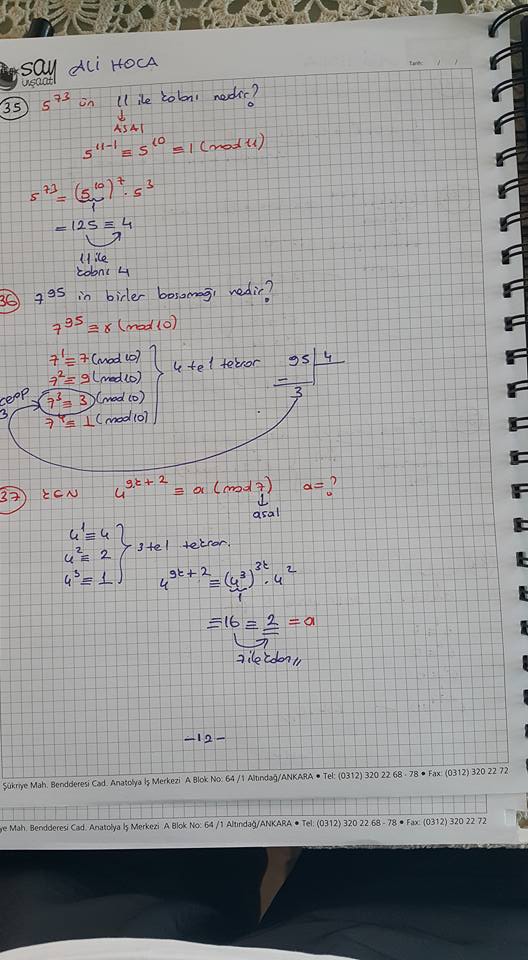 say
ALİ HOCA
Tarih: / /
35 5^73 ün 11 ile kalanı nedir?
↓
ASAL
5^11-1 ≡ 5^10 ≡ 1 (mod 11)
5^73 = (5^10)^7 . 5^3
1
= 125 ≡ 4
11 ile
kalanı 4
36 7^95 in birler basamağı nedir?
7^95 ≡ x (mod 10)
7^1 ≡ 7 (mod 10)
7^2 ≡ 9 (mod 10)
7^3 ≡ 3 (mod 10)
7^4 ≡ 1 (mod 10)
4 te1 tekrar
95 | 4
-
3
cevap
3
37 tεN 4^9t+2 ≡ a (mod 7) a=?
↓
asal
4^1 ≡ 4
4^2 ≡ 2
4^3 ≡ 1
3 te1 tekrar.
4^9t+2 ≡ (4^3)^3t . 4^2
1
≡ 16 ≡ 2 = a
7 ile kalan
-12-
Şükriye Mah. Bendderesi Cad. Anatolya İş Merkezi A Blok No: 64 /1 Altındağ/ANKARA • Tel: (0312) 320 22 68 - 78 • Fax: (0312) 320 22 72
ye Mah. Bendderesi Cad. Anatolya İş Merkezi A Blok No: 64 /1 Altındağ/ANKARA • Tel: (0312) 320 22 68 - 78 • Fax: (0312) 320 22 72